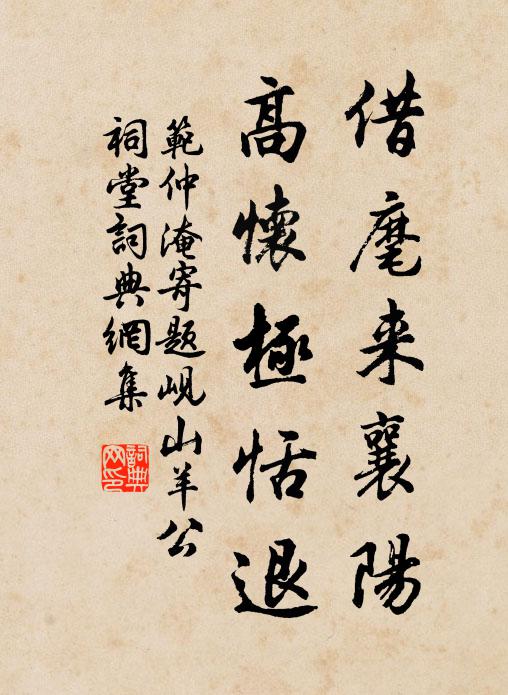 借麾来襄陽
高懷極恬退
範仲淹寄題峴山羊公
祠堂詞典網集
詞典网印